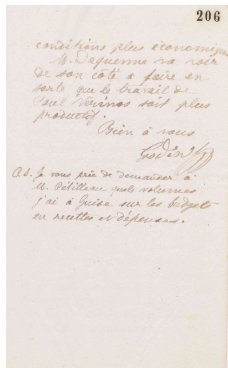 206
conditions plus économiques
M. Dequenne va voir
de son côté à faire en
sorte que le travail de
soit plus
productif.
Bien à vous
Godin
P.S. Je vous prie de demander à
M. Pétilleau quels volumes
j'ai à Guise sur les budgets
ou recettes et dépenses.